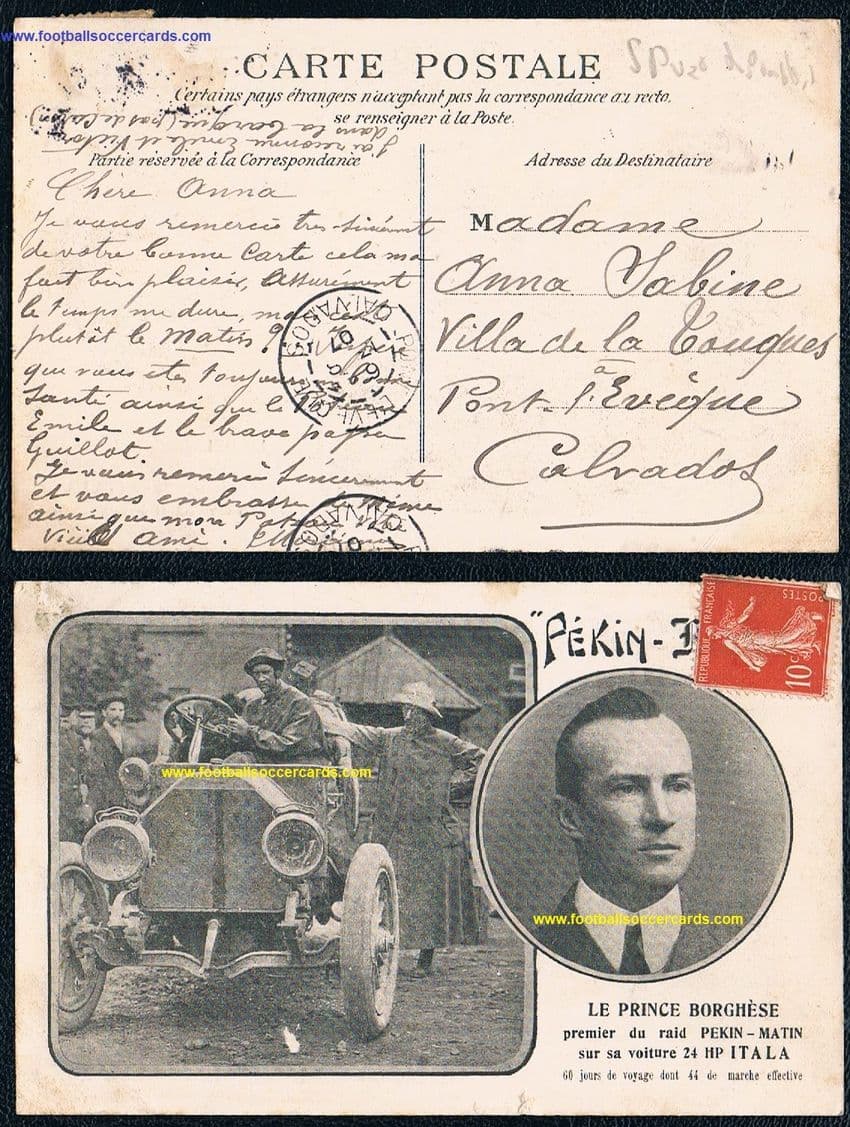 www.footballsoccercards.com
CARTE POSTALE
Certains pays étrangers n'acceptent pas la correspondance au recto.
se renseigner à la Poste.
j'ai reconnu Emile et Victor
dans la barque (pas de
Partie réservée à la Correspondance
Adresse du Destinataire
Chère Anna
Je vous remercie très-sincèrement
de votre bonne Carte cela ma
fait bien plaisir, assurément
le temps me dure,
plutôt le Matin ?
que vous êtes toujours
Santé ainsi que le
Emile et le brave papa
Guillot.
Je vous remercie sincèrement
et vous embrasse de même
ainsi que mon
Vieil ami.
Madame
Anna Sabine
Villa de la Touques
à
Pont-l'Evêque
Calvados
PONT-L'EVEQUE
CALVADOS
07
CALVADOS
"PÉKIN-
REPUBLIQUE FRANÇAISE
POSTES
10c
www.footballsoccercards.com
www.footballsoccercards.com
LE PRINCE BORGHÈSE
premier du raid PEKIN-MATIN
sur sa voiture 24 HP ITALA
60 jours de voyage dont 44 de marche effective